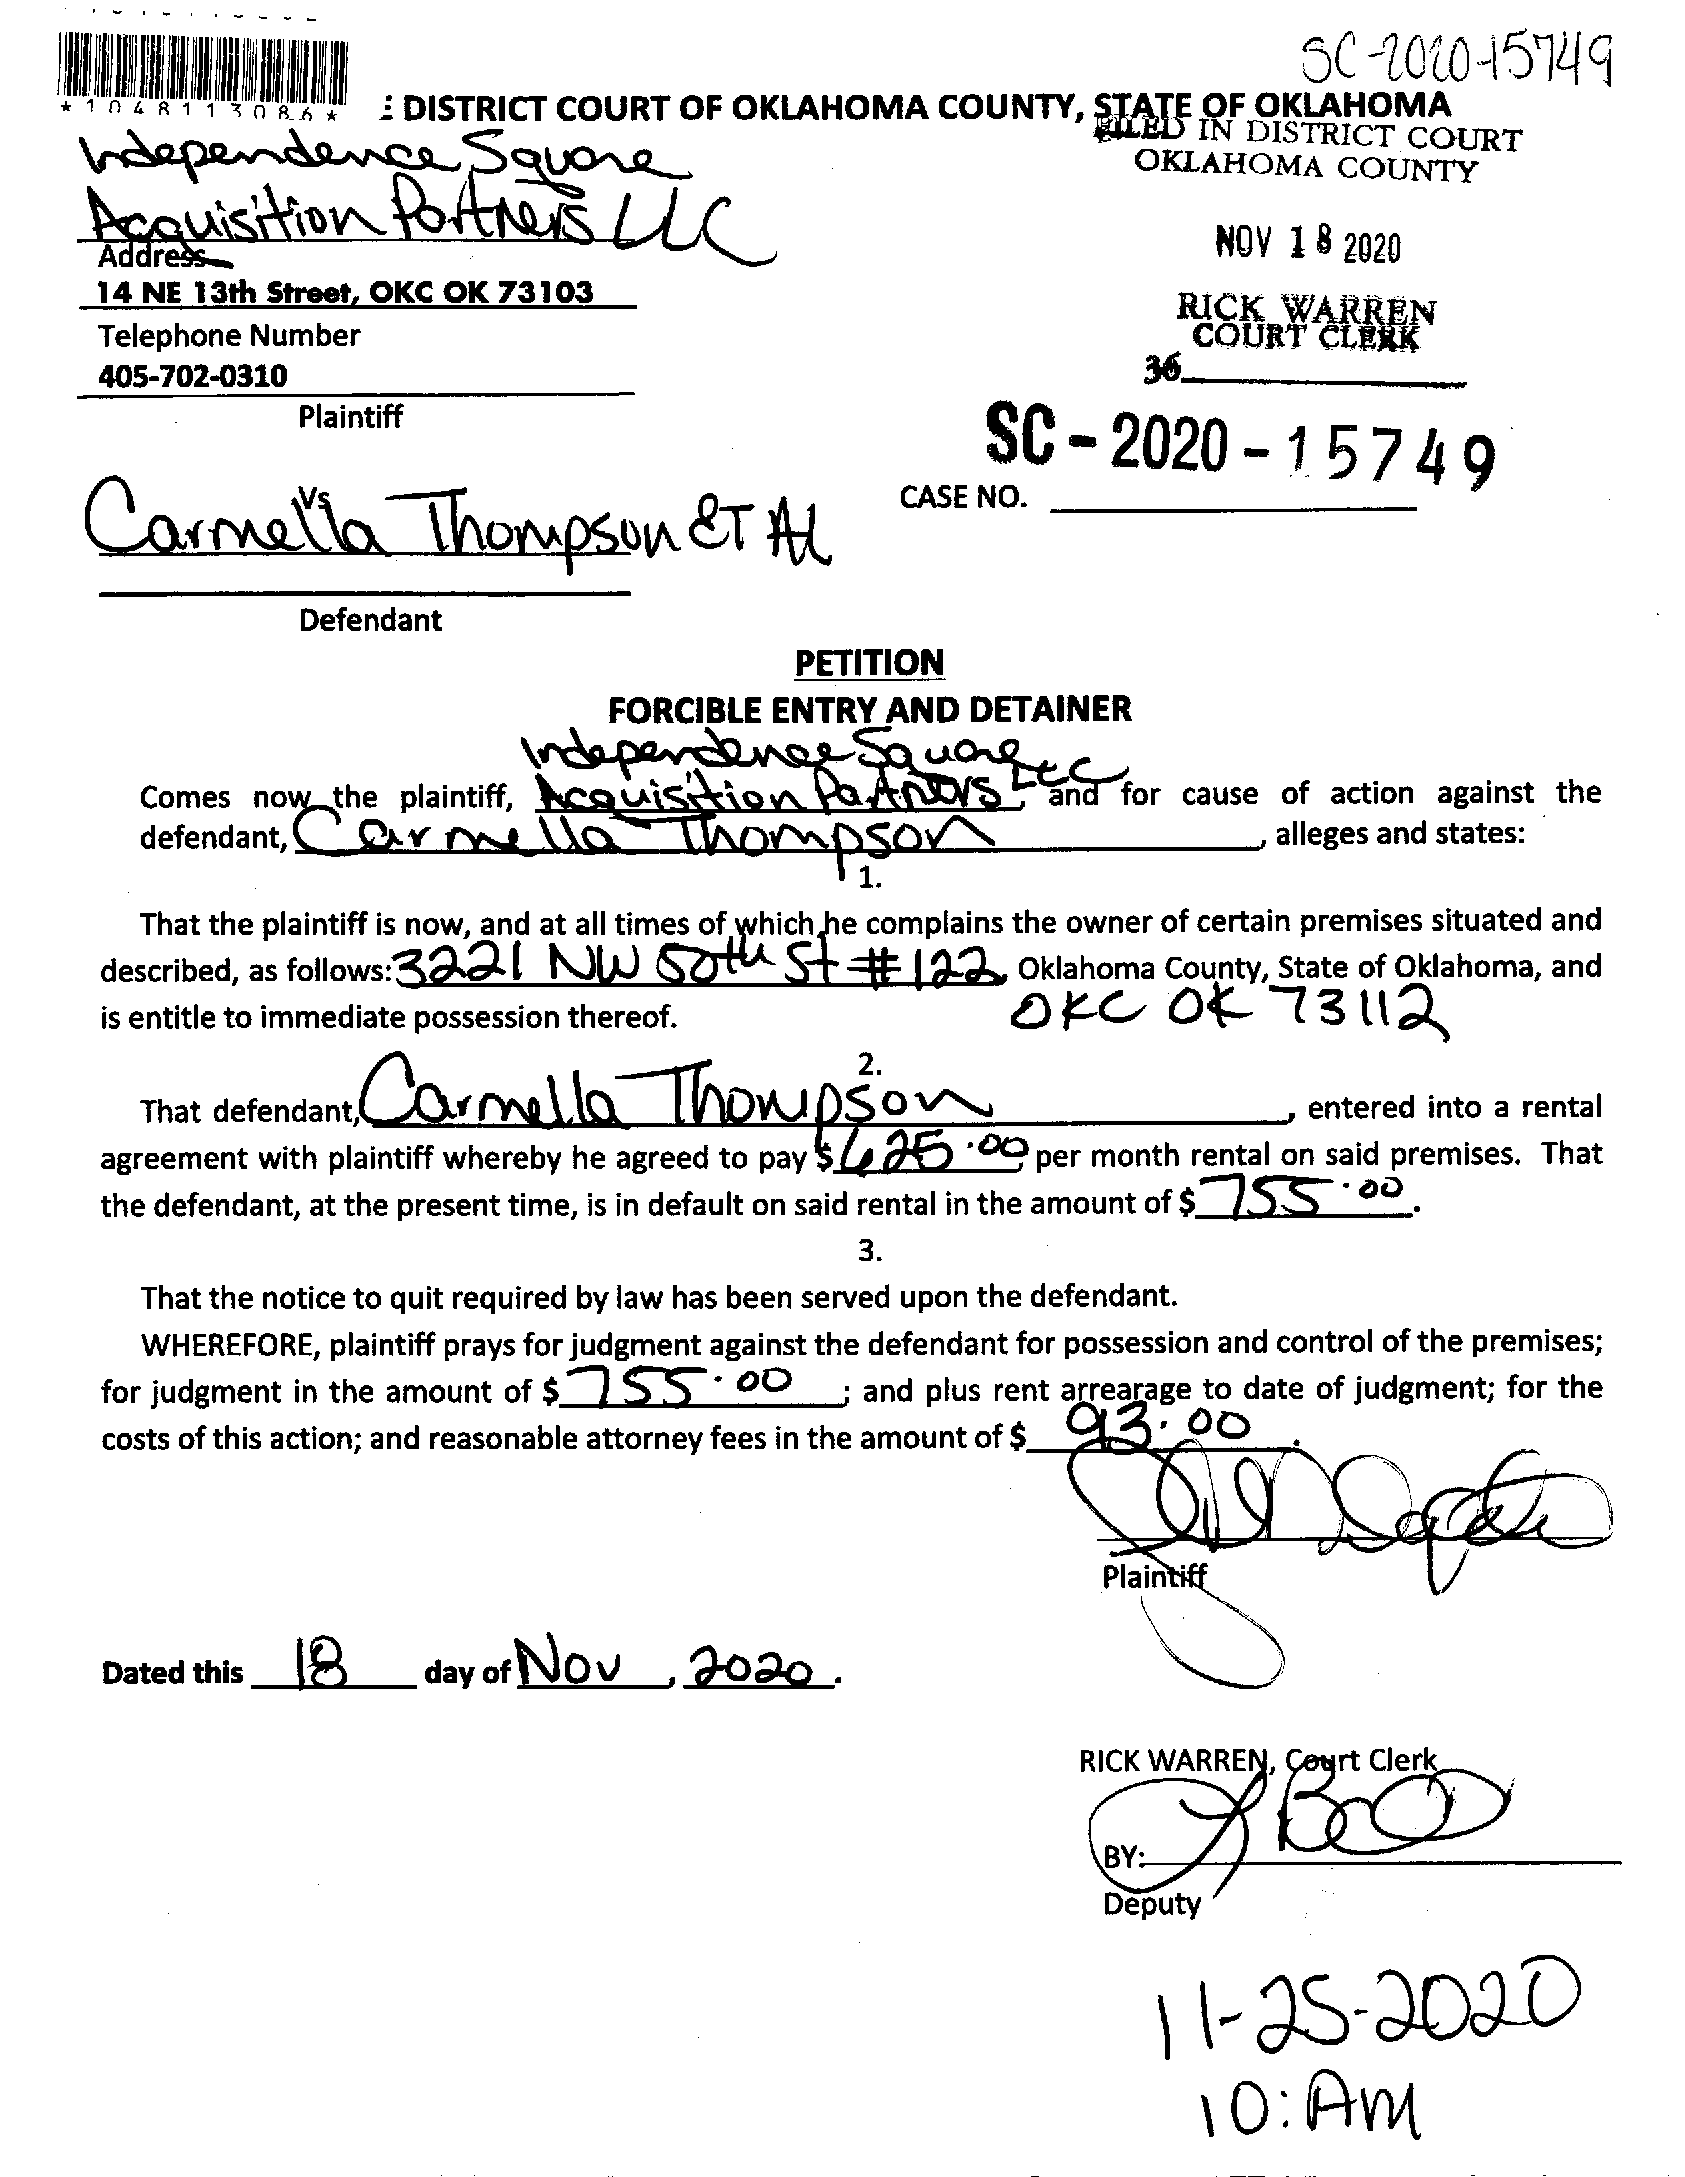 SC-2020-15749
*1048113086*
DISTRICT COURT OF OKLAHOMA COUNTY, STATE OF OKLAHOMA
FILED IN DISTRICT COURT
OKLAHOMA COUNTY
Independence Square
Acquisition Partners LLC
Address
14 NE 13th Street, OKC OK 73103
Telephone Number
405-702-0310
Plaintiff
NOV 18 2020
RICK WARREN
COURT CLERK
36
SC-2020-15749
CASE NO.
Vs
Carmella Thompson ET AL
Defendant
PETITION
FORCIBLE ENTRY AND DETAINER
Independence Square
Comes now the plaintiff, Acquisition Partners LLC, and for cause of action against the
defendant, Carmella Thompson, alleges and states:
1.
That the plaintiff is now, and at all times of which he complains the owner of certain premises situated and
described, as follows: 3221 NW 50th St #122, Oklahoma County, State of Oklahoma, and
is entitle to immediate possession thereof. OKC OK 73112
2.
That defendant, Carmella Thompson, entered into a rental
agreement with plaintiff whereby he agreed to pay $625.00 per month rental on said premises. That
the defendant, at the present time, is in default on said rental in the amount of $755.00.
3.
That the notice to quit required by law has been served upon the defendant.
WHEREFORE, plaintiff prays for judgment against the defendant for possession and control of the premises;
for judgment in the amount of $755.00; and plus rent arrearage to date of judgment; for the
costs of this action; and reasonable attorney fees in the amount of $93.00.
Plaintiff
Dated this 18 day of Nov, 2020.
RICK WARREN, Court Clerk
BY:
Deputy
11-25-2020
10:AM